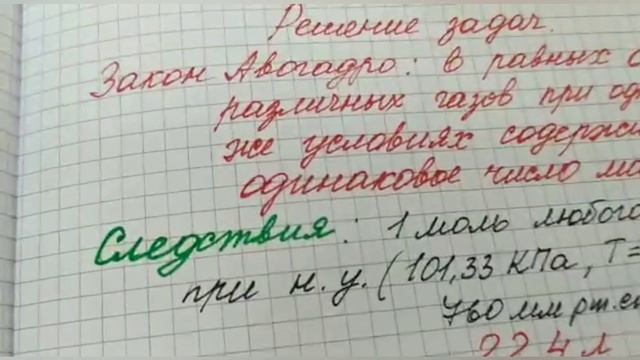 Решение задач.
Закон Авогадро: в равных
различных газов при од
же условиях содерж
одинаковое число мо
Следствия: 1 моль любого
при н.у. (101,33 КПа, Т=
760 мм рт.ст
22,4 л